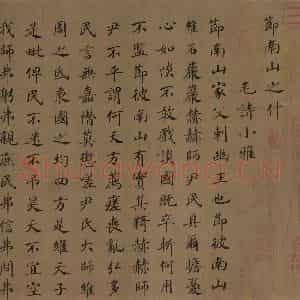 節南山之什
毛詩小雅
節南山家父刺幽王也節彼南山
維石巖巖赫赫師尹民具爾瞻憂
心如惔不敢戲談國既卒斬何用
不監節彼南山有實其猗赫赫師
尹不平謂何天方薦瘥喪亂弘多
民言無嘉憯莫懲嗟尹氏大師維
周之氐秉國之均四方是維天子
是毗俾民不迷不弔昊天不宜空
我師弗躬弗親庶民弗信弗問弗